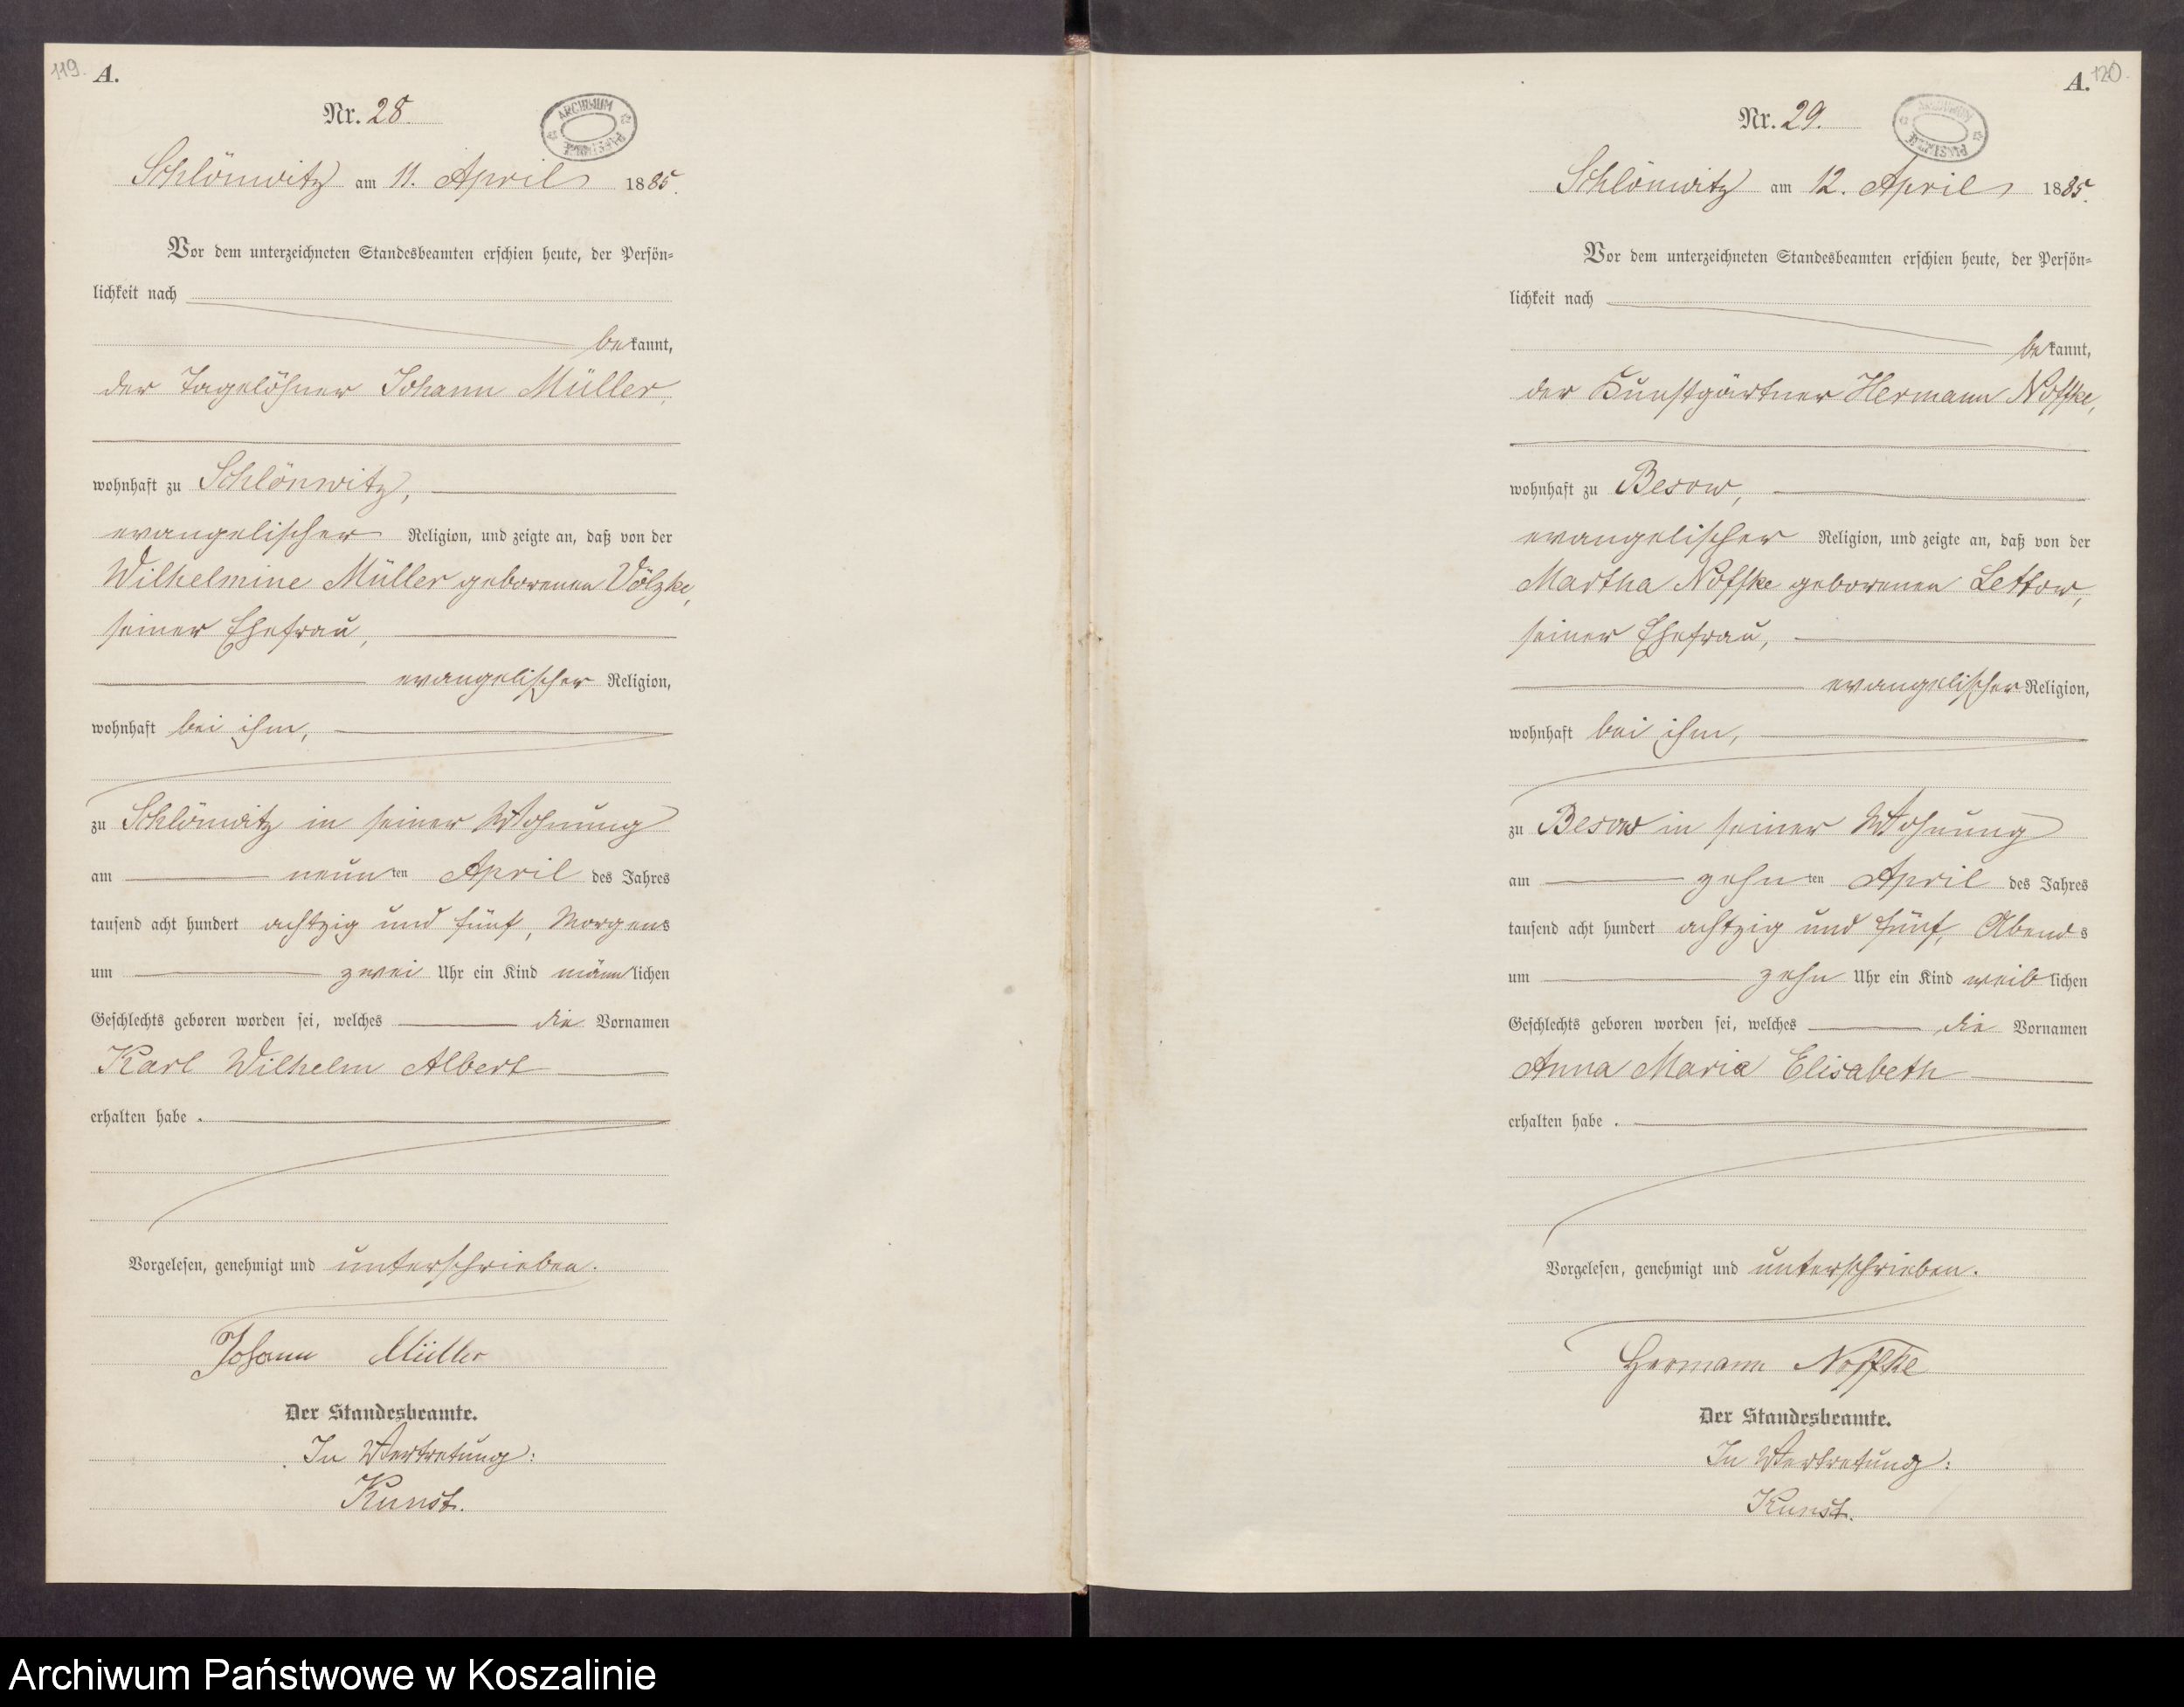 119.
A.
Nr. 28.
ARCHIWUM
Schlönwitz am 11. April 1885.
Vor dem unterzeichneten Standesbeamten erschien heute, der Persön-
lichkeit nach
bekannt,
der Tagelöhner Johann Müller,
wohnhaft zu Schlönwitz,
evangelischer Religion, und zeigte an, daß von der
Wilhelmine Müller geborenen Völzke,
seiner Ehefrau,
evangelischer Religion,
wohnhaft bei ihm,
zu Schlönwitz in seiner Wohnung
am neunten April des Jahres
tausend acht hundert achtzig und fünf, Morgens
um zwei Uhr ein Kind männlichen
Geschlechts geboren worden sei, welches die Vornamen
Karl Wilhelm Albert
erhalten habe.
Vorgelesen, genehmigt und unterschrieben.
Johann Müller
Der Standesbeamte.
In Vertretung:
Kunst.
A.
120.
Nr. 29.
Schlönwitz am 12. April 1885.
Vor dem unterzeichneten Standesbeamten erschien heute, der Persön-
lichkeit nach
bekannt,
der Kunstgärtner Hermann Noffke,
wohnhaft zu Besow,
evangelischer Religion, und zeigte an, daß von der
Martha Noffke geborenen Lettow,
seiner Ehefrau,
evangelischer Religion,
wohnhaft bei ihm,
zu Besow in seiner Wohnung
am zehnten April des Jahres
tausend acht hundert achtzig und fünf, Abends
um zehn Uhr ein Kind weiblichen
Geschlechts geboren worden sei, welches die Vornamen
Anna Maria Elisabeth
erhalten habe.
Vorgelesen, genehmigt und unterschrieben.
Hermann Noffke
Der Standesbeamte.
In Vertretung:
Kunst.
Archiwum Państwowe w Koszalinie